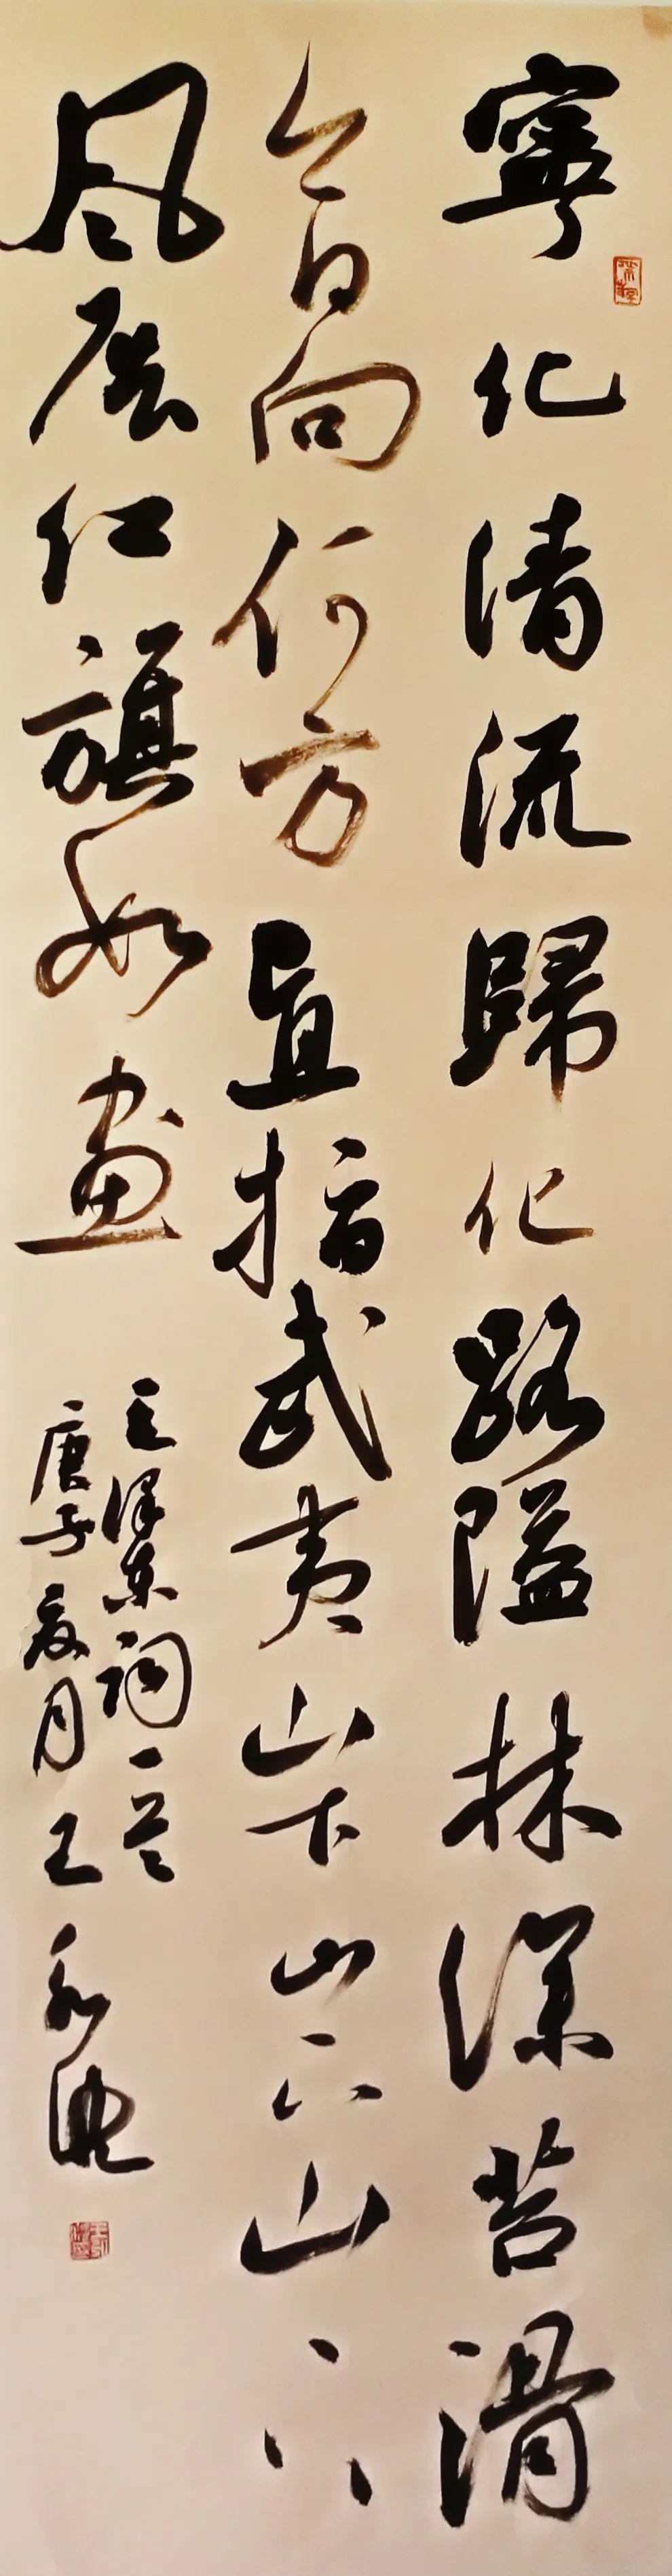 寧化清流歸化路隘林深苔滑
今日向何方直指武夷山下山下山下
风展红旗如画
毛泽东词一首
庚子夏月王永